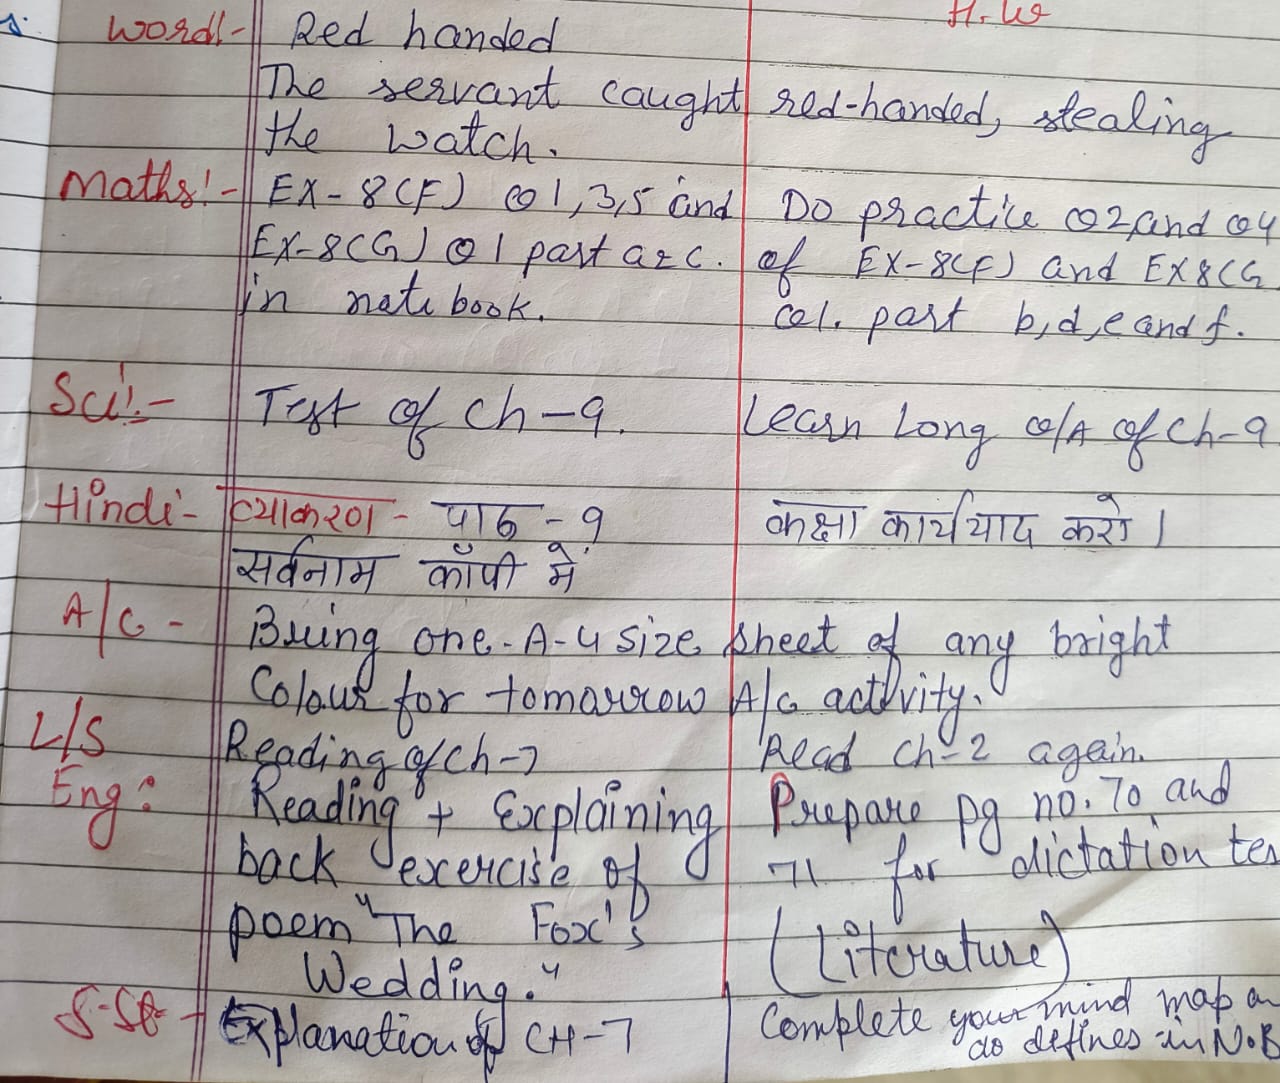 H.W
Word!- Red handed
The servant caught red-handed, stealing
the watch.
Maths!- EX-8(F) Q1,3,5 and Do practice Q2 and Q4
EX-8(G) Q1 part a & c. of EX-8(F) and EX8(G
in note book. Q1. part b,d,e and f.
Sci!- Test of Ch-9. Learn Long Q/A of Ch-9
Hindi- व्याकरण - पाठ - 9 कक्षा कार्य याद करो।
सर्वनाम कॉपी में
A/C - Bring one-A-4 size sheet of any bright
Colour for tomorrow A/C activity.
L/S Reading of Ch-2 Read Ch-2 again.
Eng: Reading + Explaining Prepare pg no. 70 and
back exercise of 71 for dictation tes
poem "The Fox's (Literature)
Wedding."
S-St - Explanation of CH-7 Complete your mind map
do defines in N.B